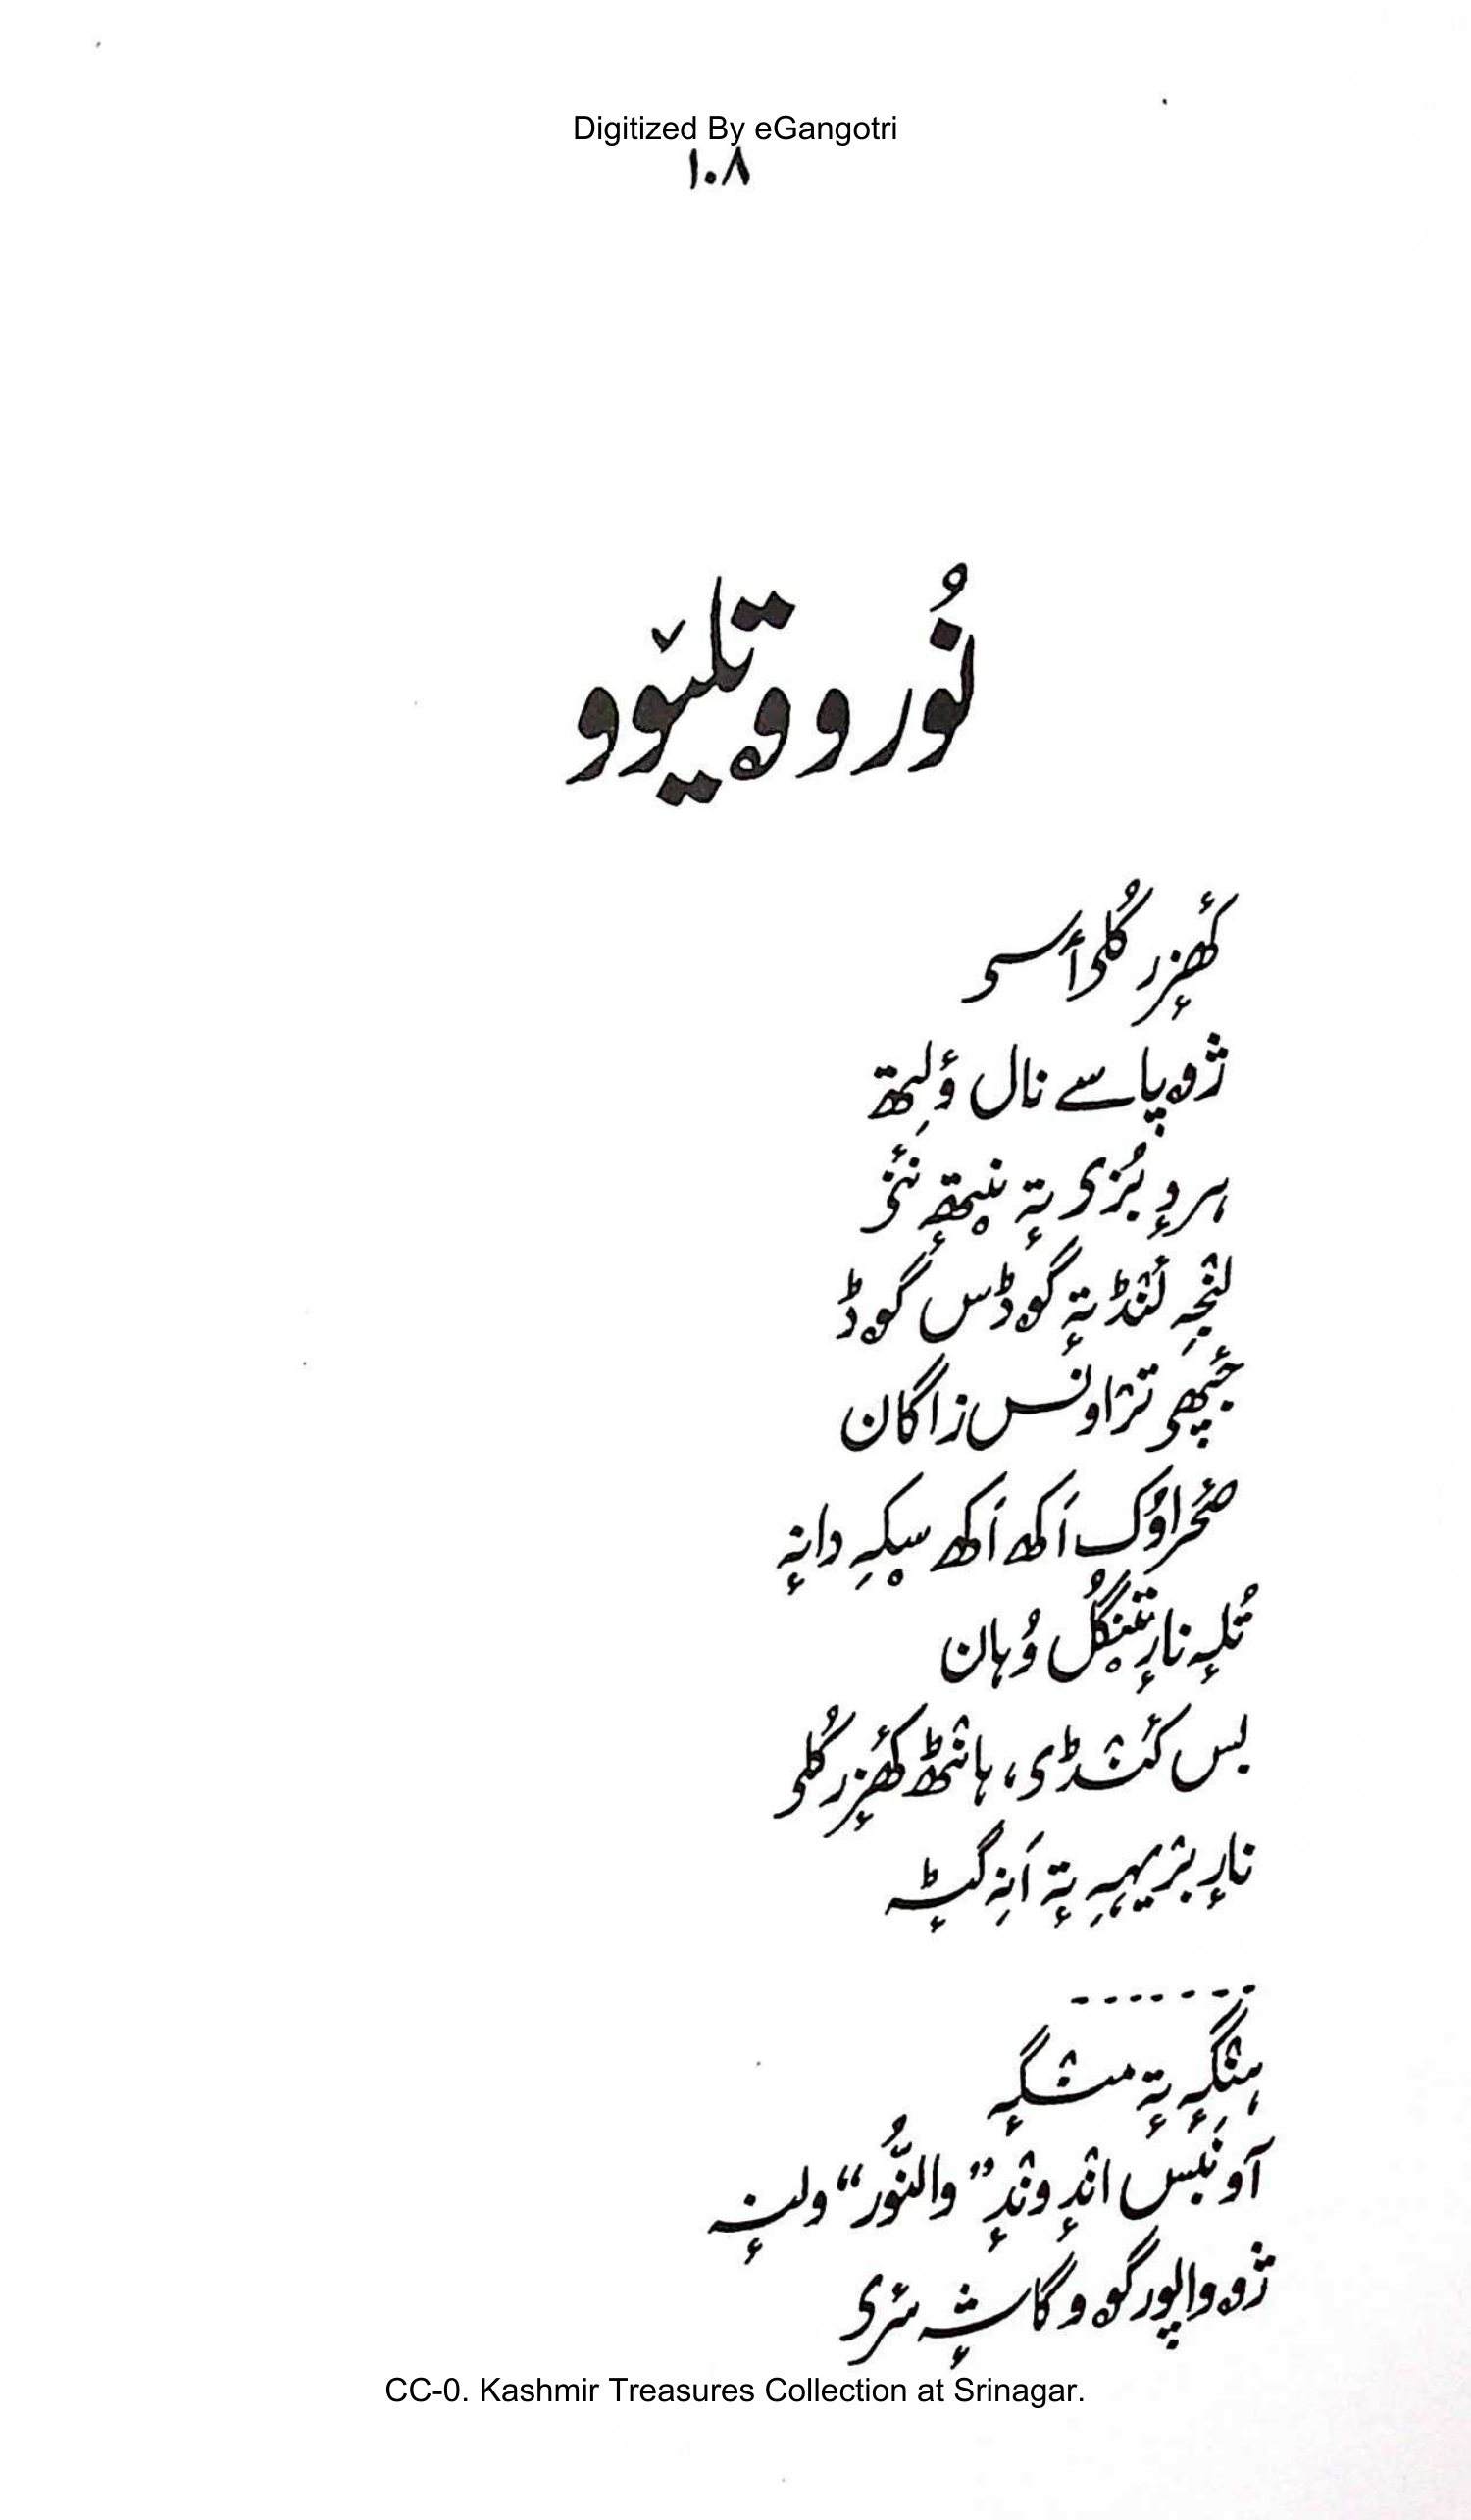 Digitized By eGangotri
۱۰۸
نُورو وۄتلیٚوو
کھٔزٕر کُلۍ أسۍ
ژۄپاسے نال ؤلِتھ
ہردٕ بُزۍ تہٕ
لنٛجہِ لٔنٛڈ تہٕ گۄڈس گۄڈ
جٔپھۍ تژاونس زاگان
صٔحراوُک اَکھ اَکھ سیٚکہِ دانہٕ
تُلہٕ نارٕ تیٚنگُل وُہان
بس کٔنٛڈۍ، ہانٛٹھ کھٔزٕر کُلۍ
نارٕ بژیہہِ تہٕ اَنہِ گٹہٕ
-------
ہنٛگہٕ تہٕ منٛگہٕ
آو نَبَس انٛدٕ ونٛدٕ ”والنُّور“ ولنہٕ
ژۄواپور گۄو گاشہٕ سٔری
CC-0. Kashmir Treasures Collection at Srinagar.